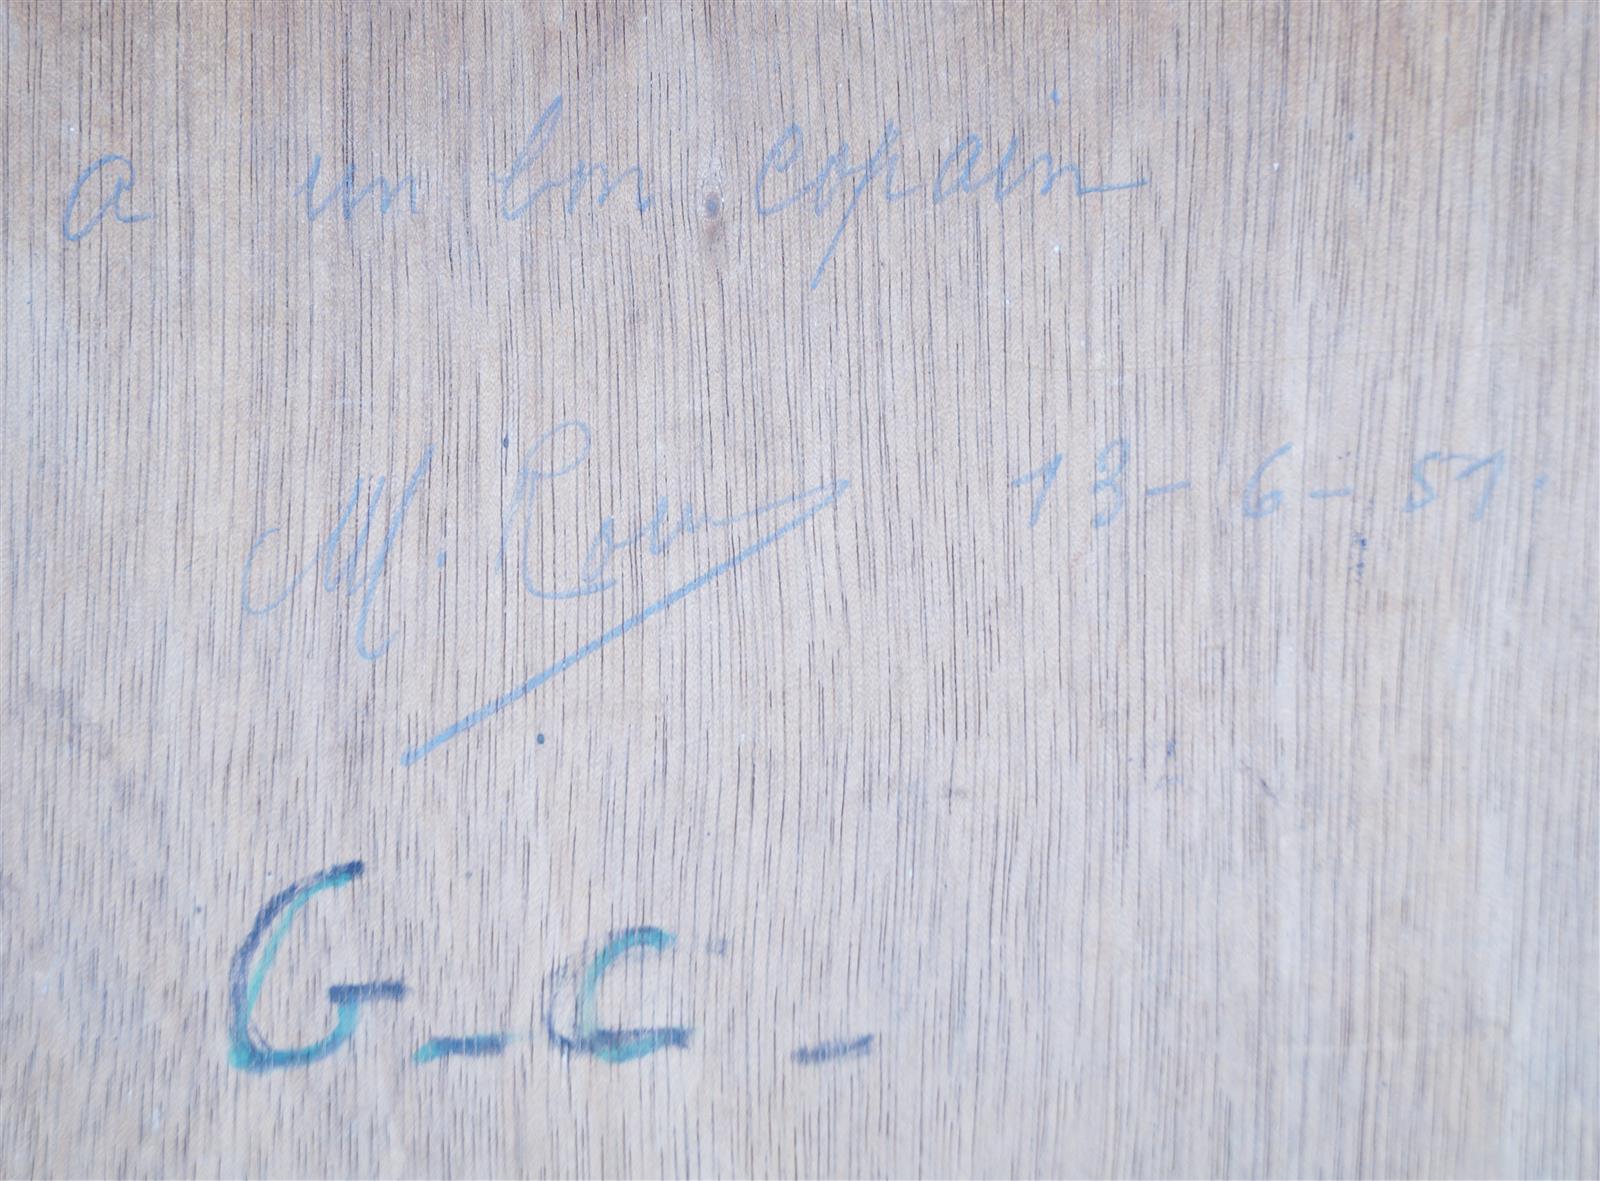 a un bon copain
M. Rom 13-6-51.
G_C_